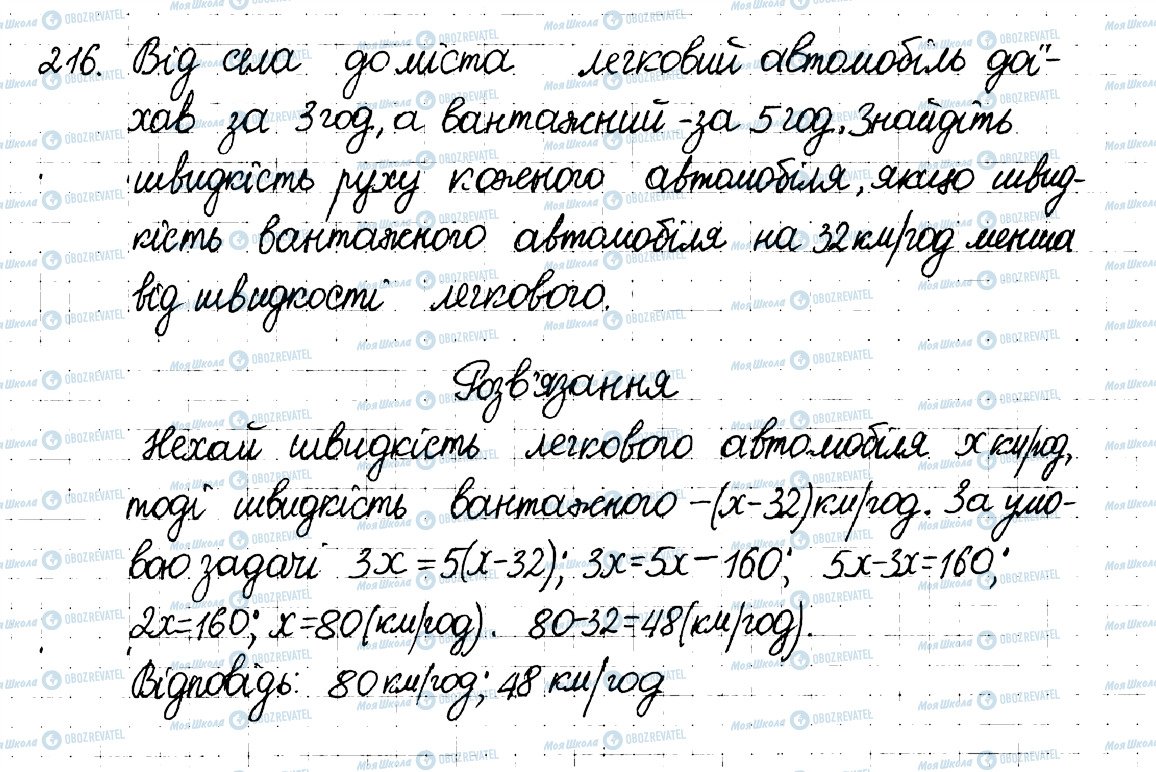 216. Від села до міста легковий автомобіль дої-
хав за 3 год, а вантажний - за 5 год. Знайдіть
швидкість руху кожного автомобіля, якщо швид-
кість вантажного автомобіля на 32 км/год менша
від швидкості легкового.
Розв'язання
Нехай швидкість легкового автомобіля x км/год,
тоді швидкість вантажного - (x-32) км/год. За умо-
вою задачі 3x = 5(x-32); 3x = 5x - 160; 5x-3x=160;
2x=160; x=80 (км/год). 80-32=48 (км/год).
Відповідь: 80 км/год; 48 км/год